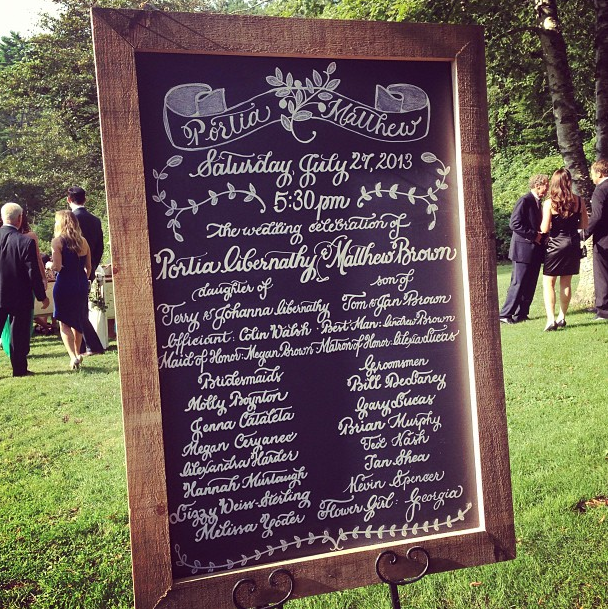 Portia Matthew
Saturday July 27, 2013
5:30 pm
the wedding celebration of
Portia Abernathy & Matthew Brown
daughter of
Terry & Johanna Abernathy
son of
Tom & Jan Brown
Officiant: Colin Walsh · Best Man: Andrew Brown
Maid of Honor: Megan Brown · Matron of Honor: Alexia Lucas
Bridesmaids
Molly Boynton
Jenna Cataleta
Megan Ceryanec
Alexandra Harder
Hannah Murtaugh
Lizzy Weiss-Sterling
Melissa Yoder
Groomsmen
Bill DeLaney
Gary Lucas
Brian Murphy
Ted Nash
Ian Shea
Kevin Spencer
Flower Girl: Georgia